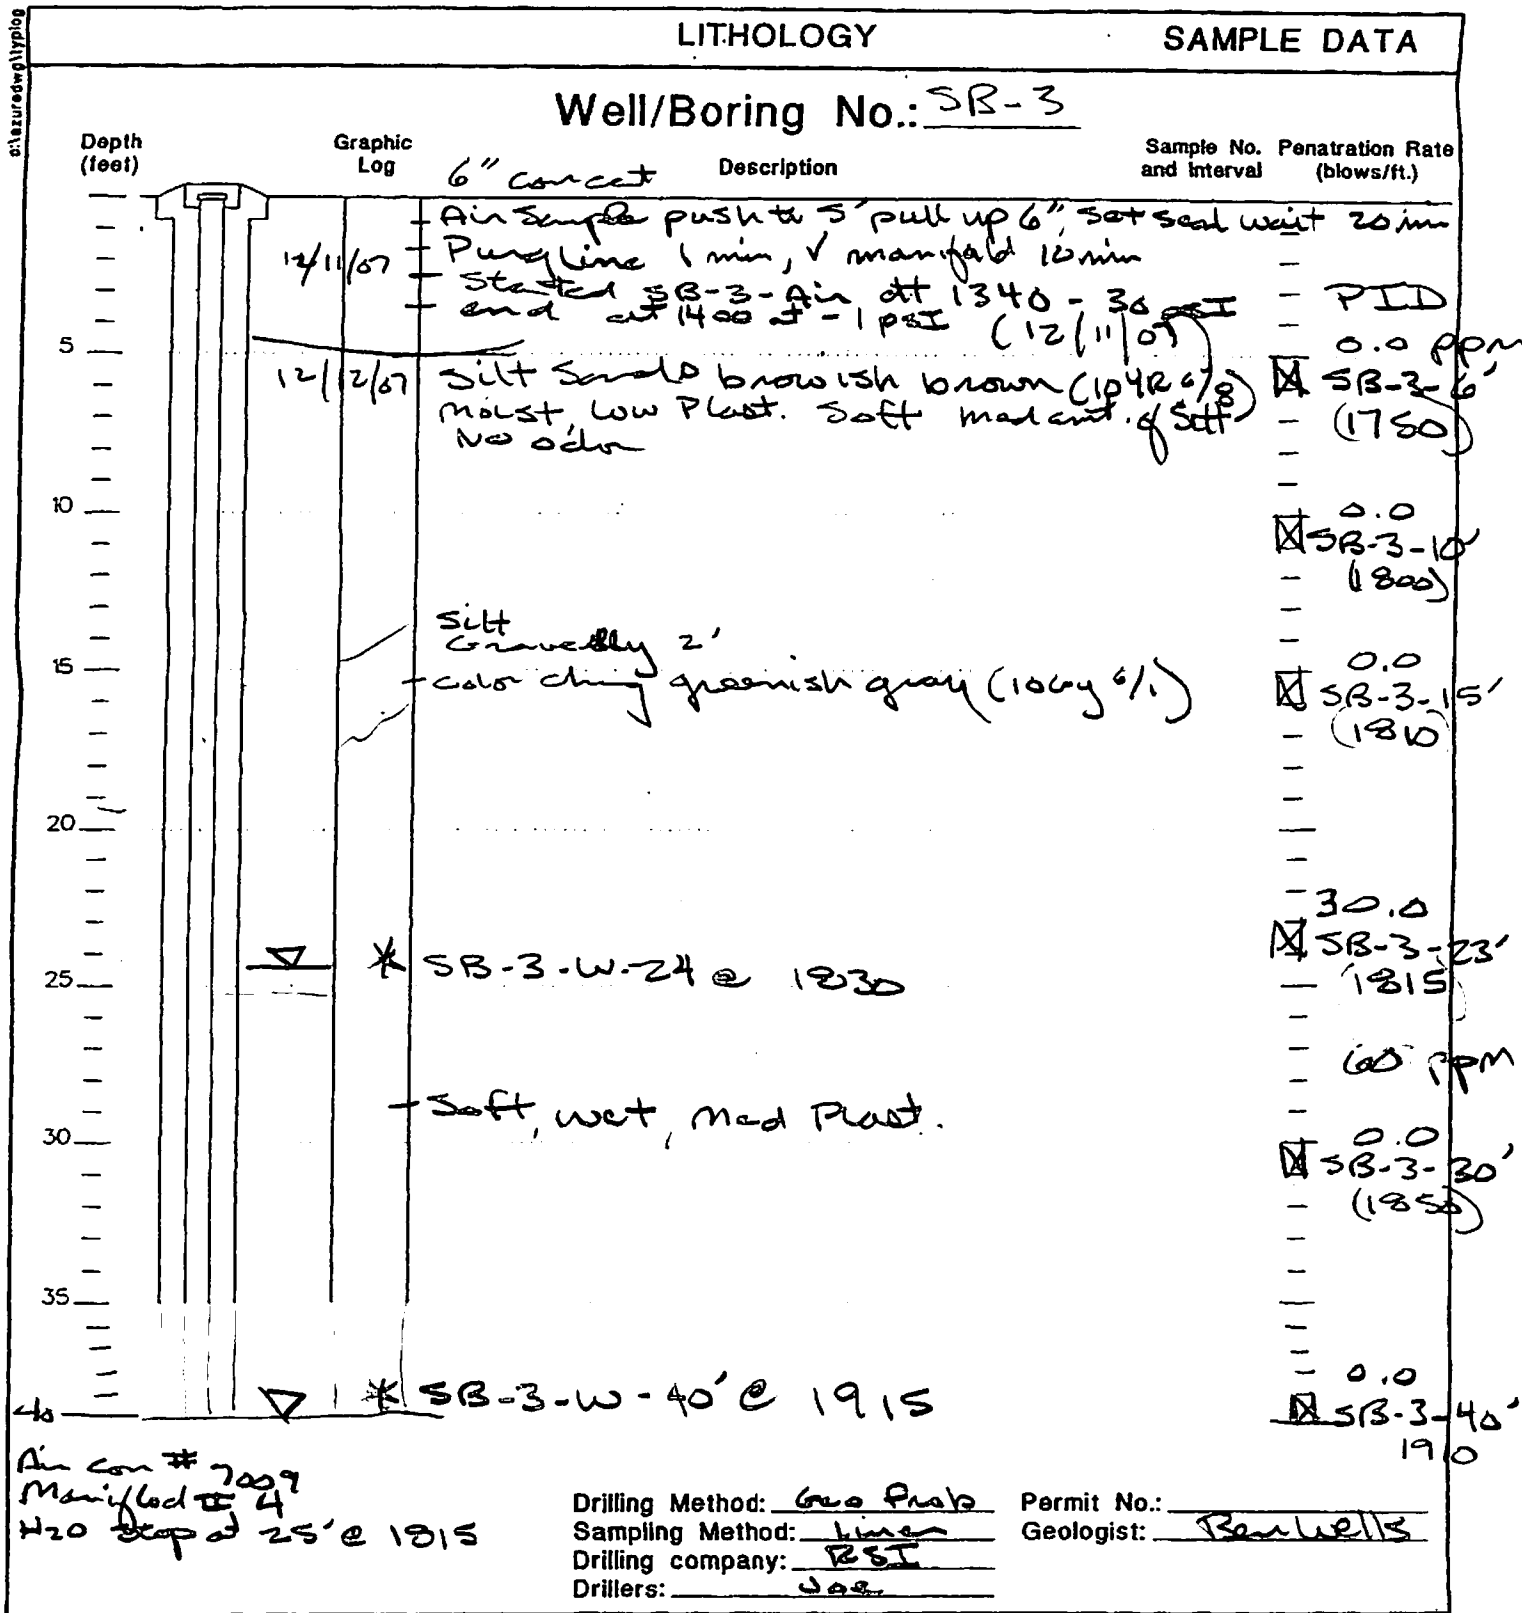 c:\azuredwg\typlog
LITHOLOGY SAMPLE DATA
Well/Boring No.: SB-3
Depth (feet) Graphic Log Description Sample No. and Interval Penatration Rate (blows/ft.)
6"
Air Sample push to 5' pull up 6", set seal wait 20 min
12/11/07 Purg Line 1 min, √ manifold 10 min
Started SB-3-Air at 1340 - 30 psI
end at 1400 at -1 psI (12/11/07)
PID
5 0.0 ppm
12/12/07 Silt Sands browish brown (10YR 6/8) SB-3-6'
moist, Low Plast. Soft mod amt. of Silt (1750)
No odor
10 0.0
SB-3-10'
(1800)
Silt
Gravelly 2'
15 0.0
color chng greenish gray (10Gy 6/1) SB-3-15'
(1810)
20
30.0
SB-3-W-24 @ 1830 SB-3-23'
25 (1815)
60 ppm
Soft, wet, Med Plast.
30 0.0
SB-3-30'
(1850)
35
0.0
SB-3-W-40' @ 1915
40 SB-3-40'
1910
Air can # 7009
Maniflod # 4
H2O stop at 25' @ 1815
Drilling Method: Geo Prob Permit No.:
Sampling Method: Liner Geologist: Ben Wells
Drilling company: RSI
Drillers: Joe